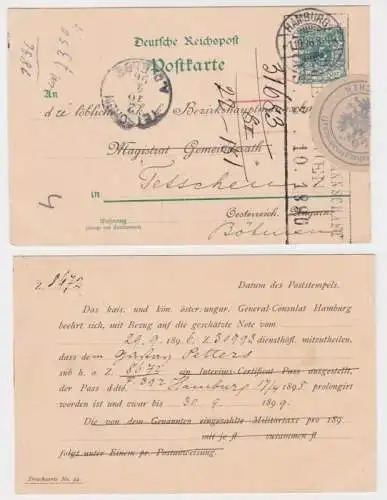 9586
HAMBURG
Deutsche Reichspost
Postkarte
An
31683
die löbliche Bezirkshauptmannschaft
Magistrat Gemeinderath
Tetschen
in
10. 1896
Oesterreich Ungarn.
Wohnung
(Strasse und Hausnummer)
Böhmen
4
Z. 8672 Datum des Poststempels.
Das kais. und kön. österr.ungar. General-Consulat Hamburg
beehrt sich, mit Bezug auf die geschätzte Note vom
29. 9. 1896, Z 31993 diensthöfl. mitzutheilen,
dass dem Petters
sub h. a. Z. 8672 ein Interims-Certificat Pass ausgestellt,
der Pass ddto. Hamburg 17/4 1895 prolongirt
worden ist und zwar bis 30. 9. 1899.
Die von dem Genannten eingezahlte Militärtaxe pro 189
mit je fl. zusammen fl.
folgt unter Einem pr. Postanweisung.
Drucksorte No. 22.